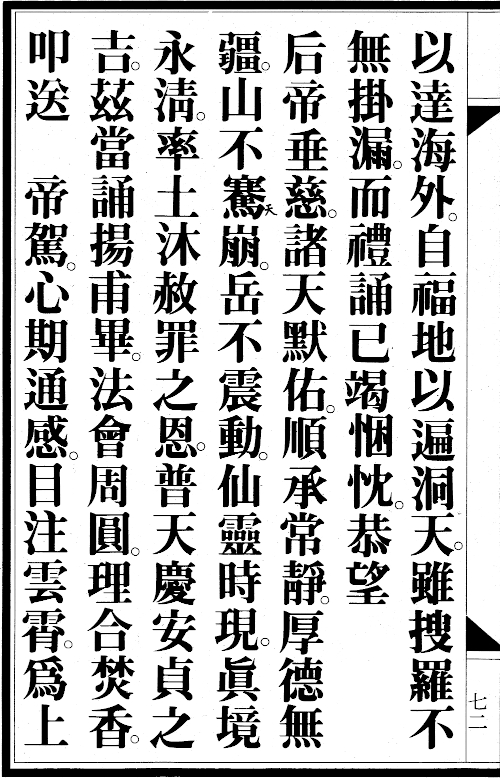 以達海外。自福地以遍洞天。雖搜羅不
無掛漏。而禮誦已竭悃忱。恭望
后帝垂慈。諸天默佑。順承常靜。厚德無
疆。山不騫天崩。岳不震動。仙靈時現。眞境
永淸。率土沐赦罪之恩。普天慶安貞之
吉。茲當誦揚甫畢。法會周圓。理合焚香。
叩送　帝駕。心期通感。目注雲霄。爲上
七二